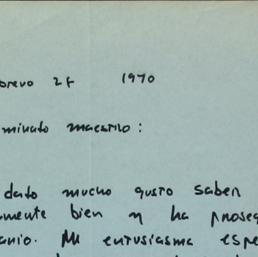 brero 27 1970
minuto maestro:
dato mucho gusto saber
amente bien y ha proseg
anio. Me entusiasma espe